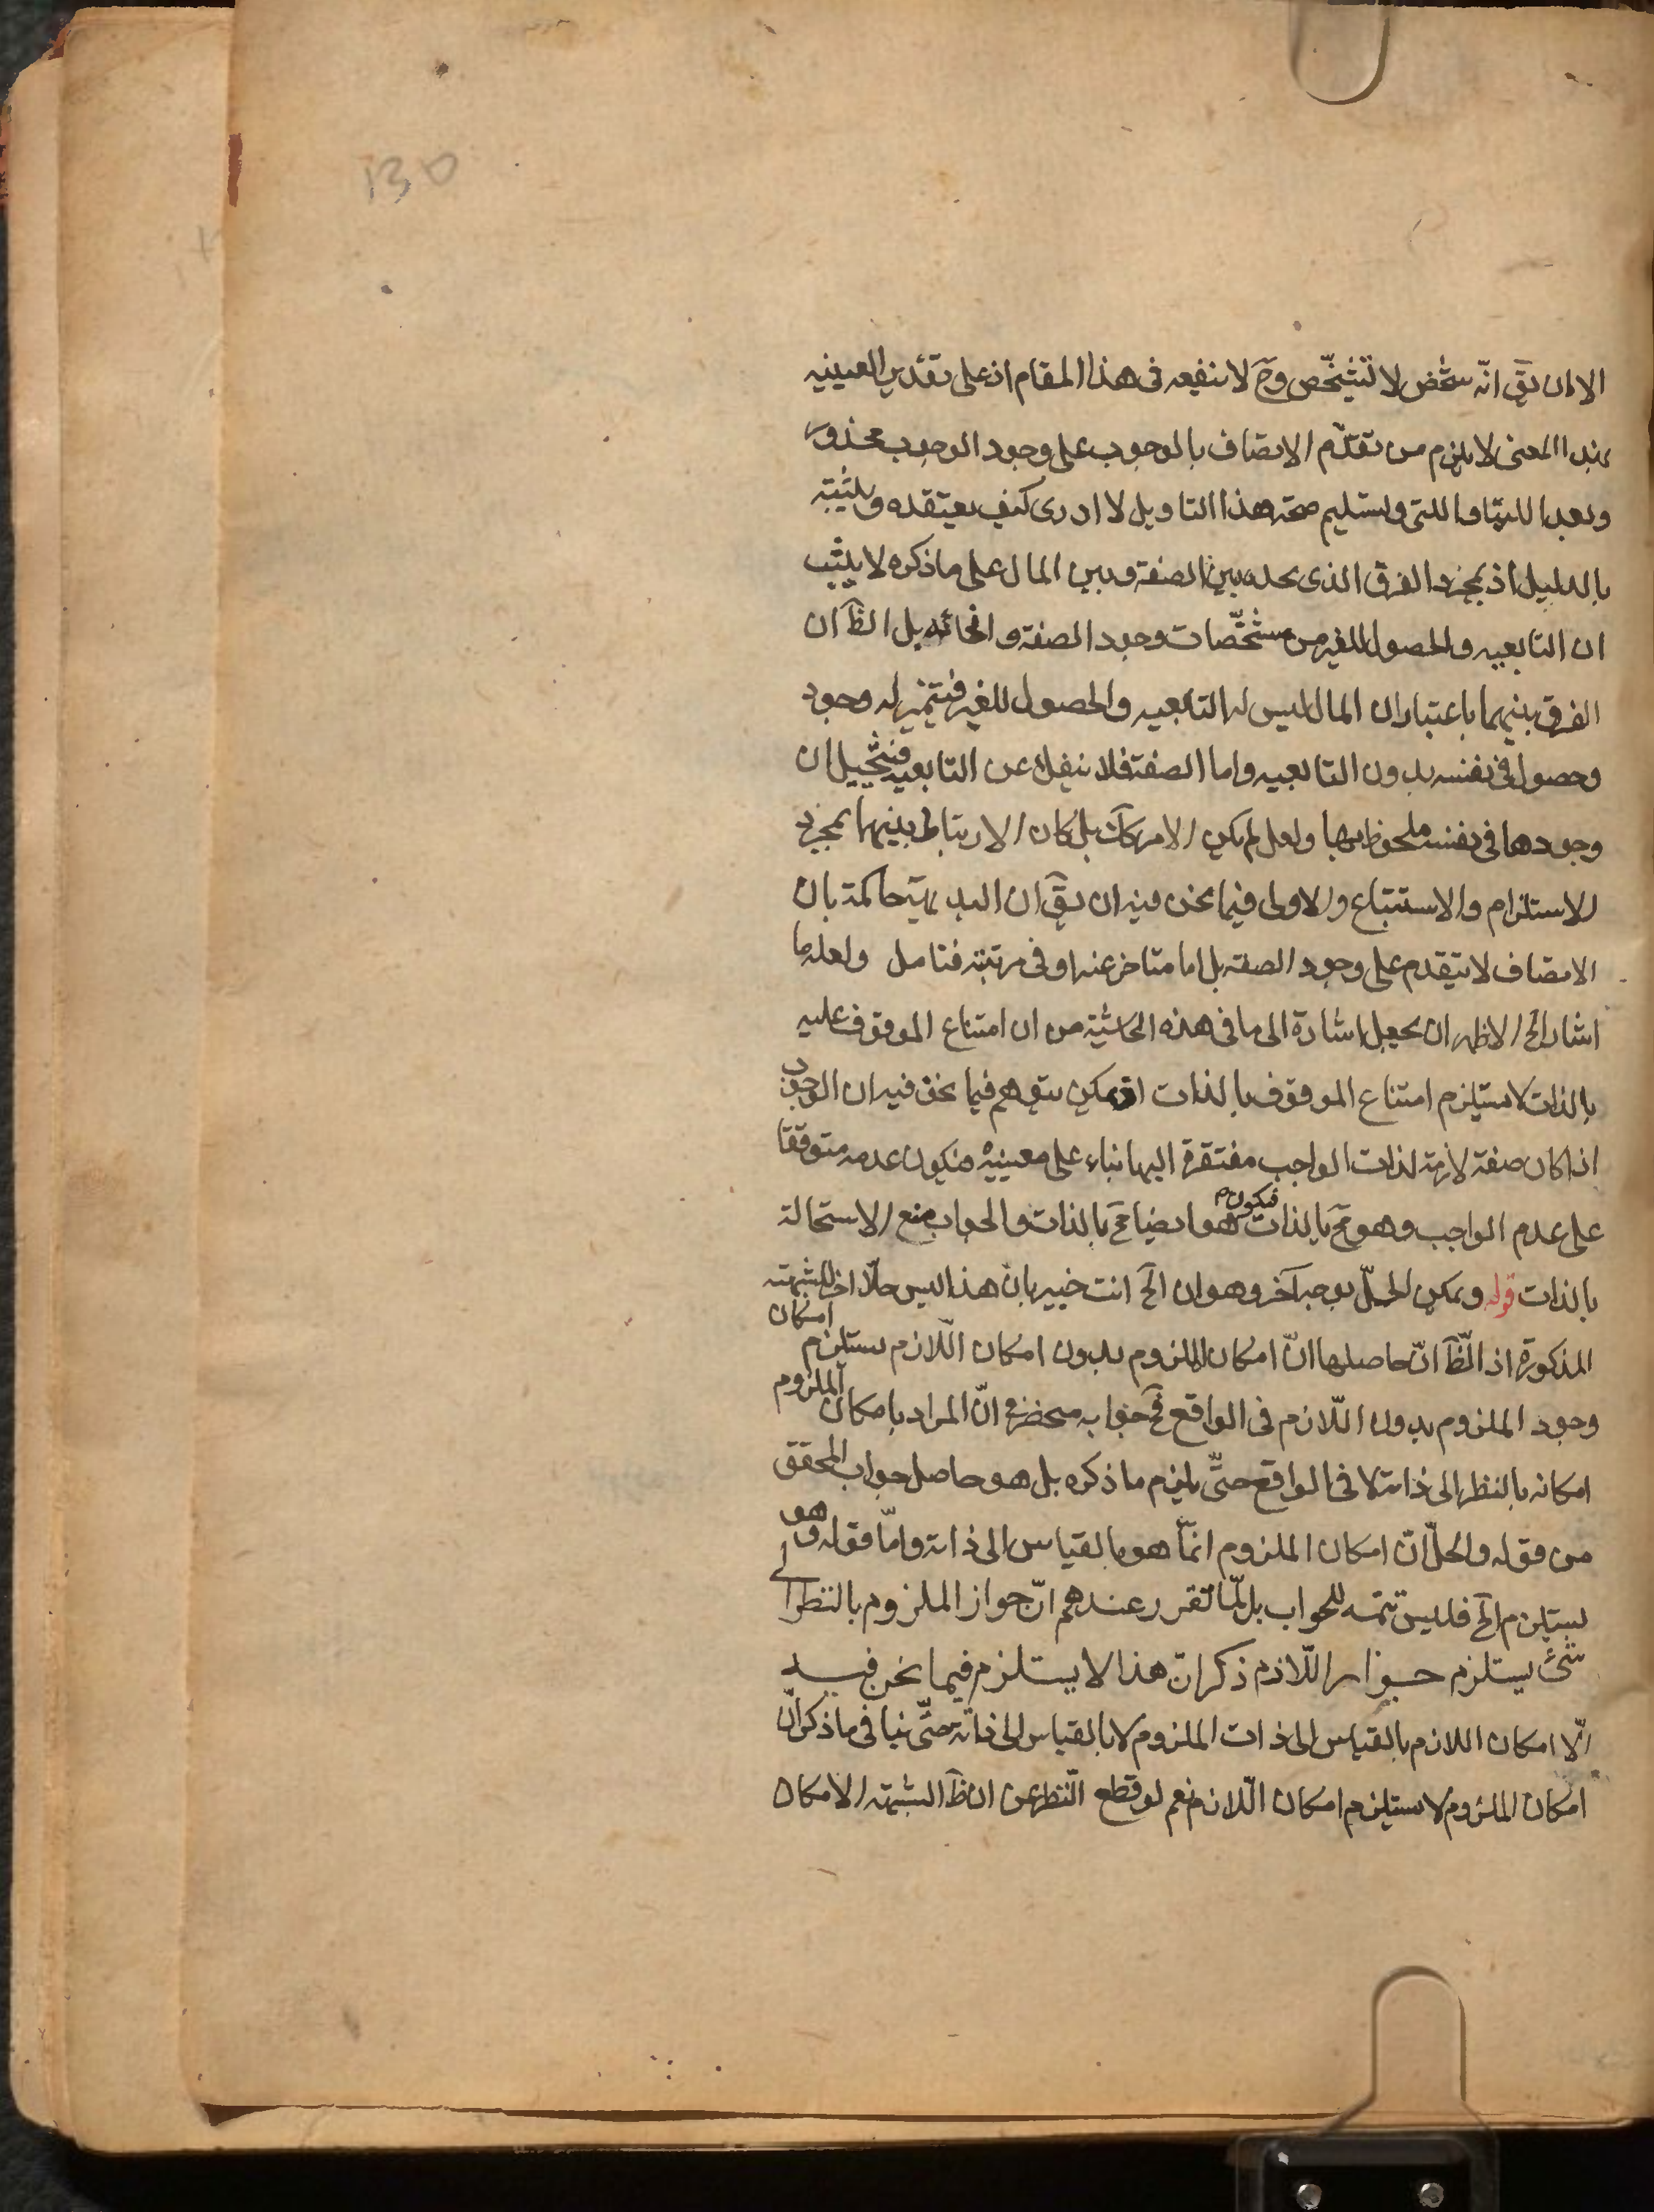 130
الا ان يقَ انّه شخص لا تشخّص وحَ لا ينفعه فى هذا المقام اذ على تقدير العينيه
بهذا المعنى لا يلزم من تقدّم الاتصاف بالوجوب على وجود الوجوب محذور
وبعد اللتيا والتى وتسليم صحة هذا التاويل لا ادرى كيف يعتقده ويثبته
بالدليل اذ بمجرد الفرق الذى يجده بين الصفة وبين المال على ما ذكره لا يثبت
ان التابعيه والحصول للغير من مشخّصات وجود الصفة وانحائه بل الظَ ان
الفرق بينهما باعتبار ان المال ليس له التابعيه والحصول للغير فيتميز له وجود
وحصول فى نفسه بدون التابعيه واما الصفة فلا ينفك عن التابعيه فيتخيل ان
وجودها فى نفسه ملحوظ بها ولعل لم يكن الامر كَك بل كان الارتباط بينهما بمجرد
الاستلزام والاستتباع والاولى فيما نحن فيه ان يقَ ان البديهة حاكمة بان
الاتصاف لا يتقدم على وجود الصفه بل اما متاخر عنه او فى مرتبته فتامل ولعله ما
اشار الخ الاظهر ان يجعل اشارة الى ما فى هذه الحاشية من ان امتناع الموقوف عليه
بالذات لا يستلزم امتناع الموقوف بالذات اذ يمكن يتوهم فيما نحن فيه ان الوجوب
اذا كان صفة لازمة لذات الواجب مفتقرة اليها بناء على معينيه فيكون عدمه متوقفا
على عدم الواجب وهو مَح بالذات فيكون هو ايضا مَح بالذات والجواب منع الاستحالة
بالذات قوله ويمكن الحلّ بوجه آخر وهو ان الخ انت خبير بان هذا ليس حلّا آخر للشبهته
المذكورة اذ الظَّ انّ حاصلها انّ امكان الملزوم بدون امكان اللّازم يستلزم امكان
وجود الملزوم بدون اللّازم فى الواقع فَح جوابه منحصر فى انّ المراد بامكان الملزوم
امكانه بالنظر الى ذاته لا فى الواقع حتّى يلزم ما ذكره بل هو حاصل جواب المحقق
من قوله والحلّ انّ امكان الملزوم انّما هو بالقياس الى ذاته وامّا قوله وهو
يستلزم الخ فليس تتمه للجواب بل لمّا تقرر عندهم انّ جواز الملزوم بالنظر الى
شئ يستلزم جواز اللّازم ذكر انّ هذا لا يستلزم فيما نحن فيه
الّا امكان اللازم بالقياس الى ذات الملزوم لا بالقياس الى ذاته حتّى ينافى ما ذكر انّ
امكان الملزوم لا يستلزم امكان اللّازم نعم لو قطع النظر عن انّ ظَ الشبهته الامكان